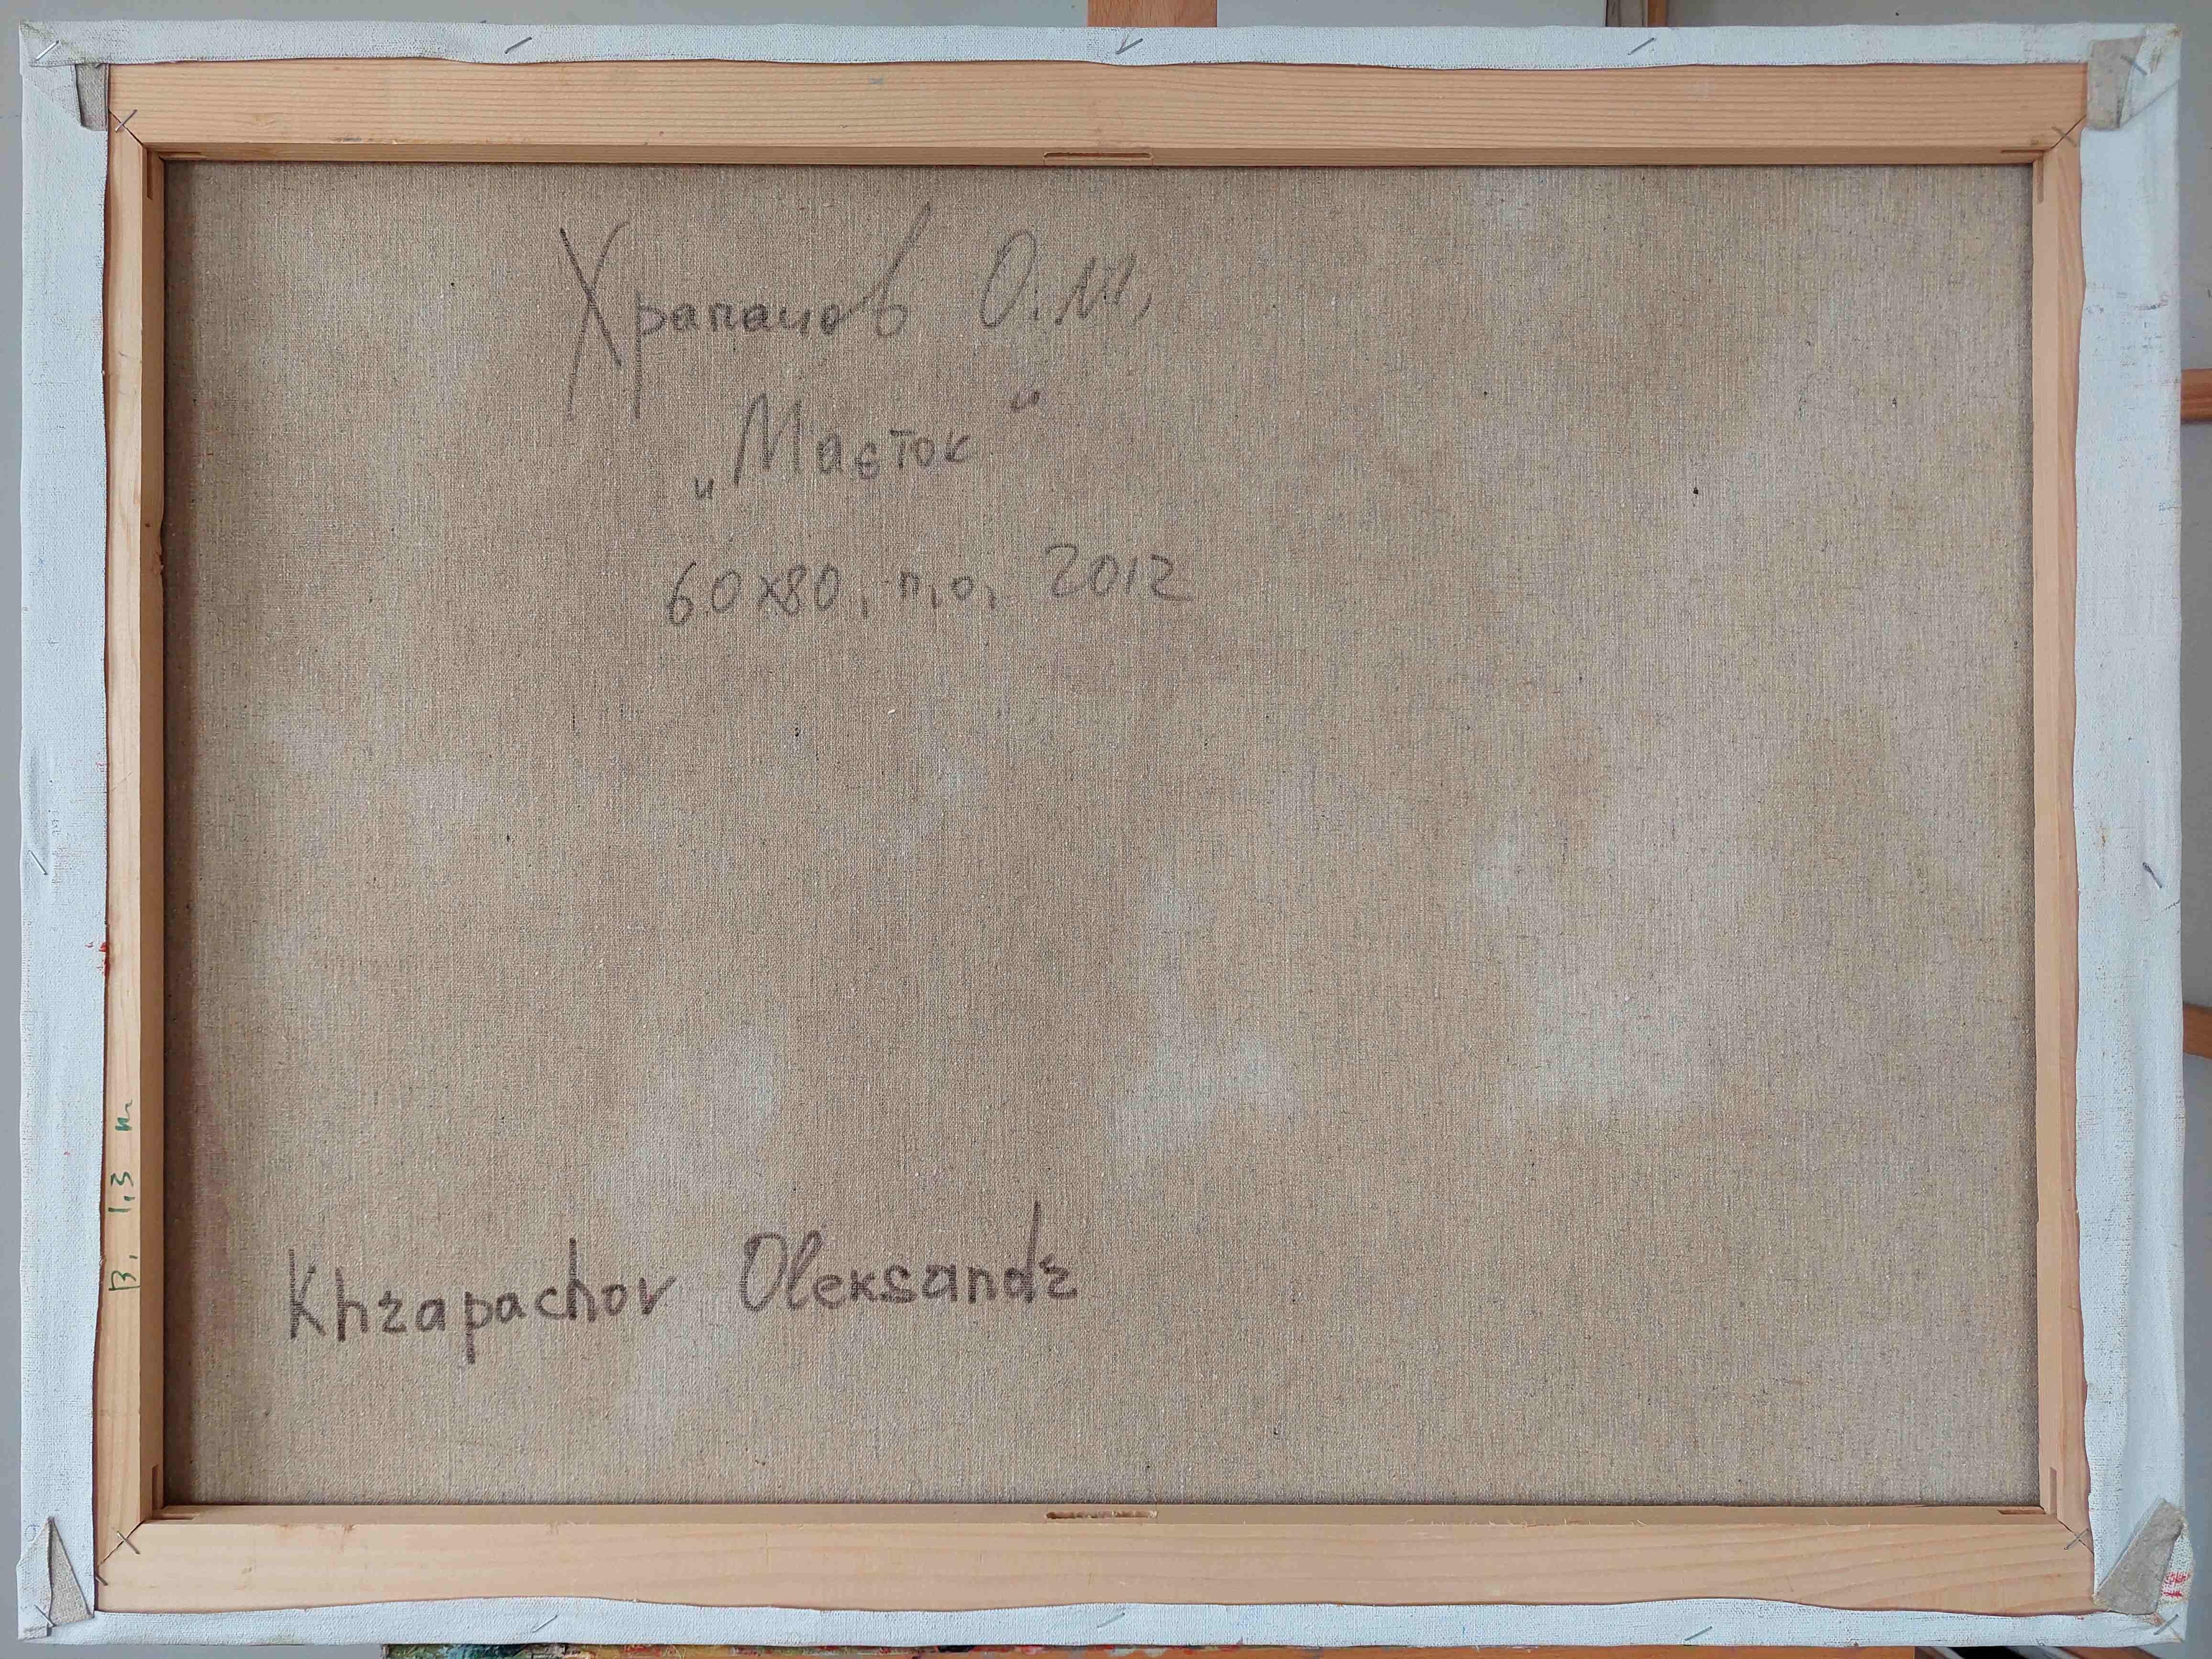 Храпачов О.М.
„Маєток“
60x80, п.о, 2012
В. 1,3 м
Khrapachov Oleksandr